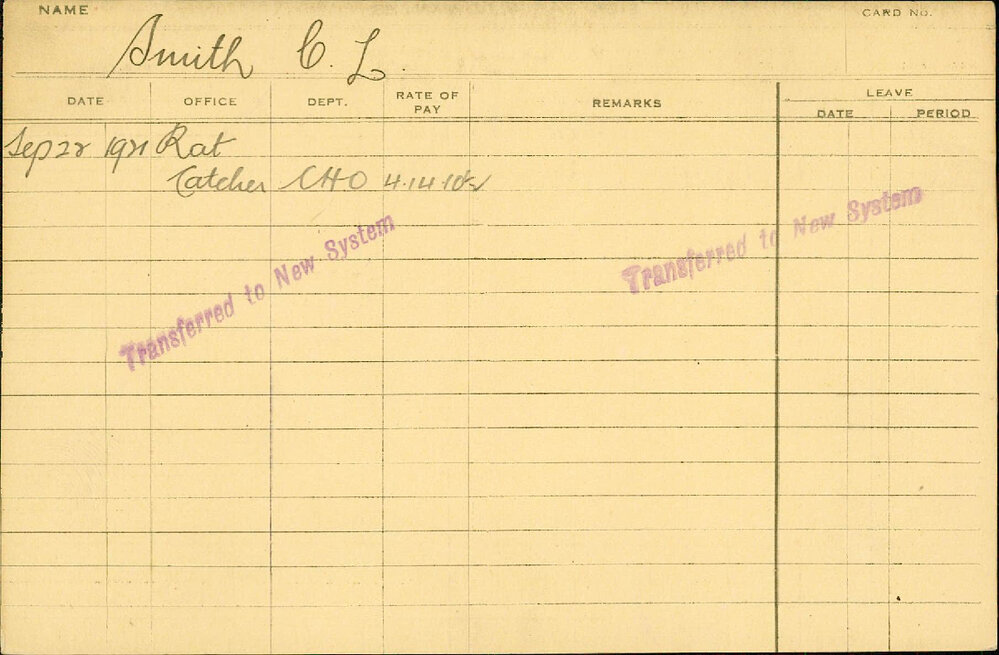 NAME
CARD NO.
Smith C. L.
DATE OFFICE DEPT. RATE OF PAY REMARKS LEAVE
DATE PERIOD
Sep 22 1921 Rat
Catcher CHO 4.14.10
Transferred to New System
Transferred to New System